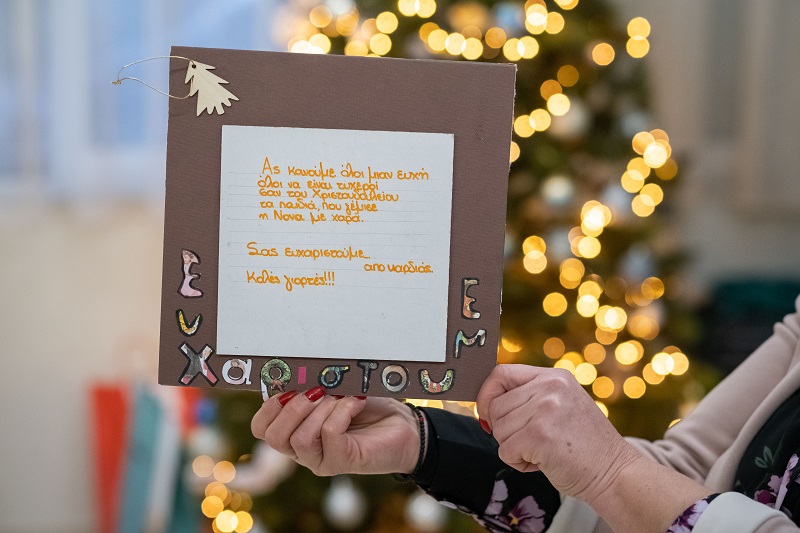 Ας κανούμε όλοι μιαν ευχή
όλοι να είναι τυχεροί
σαν του Χριστουδουλείου
τα παιδιά, που γέμισε
η Νονα με χαρά.
Σας ευχαριστούμε..
απο καρδιάς.
Καλές γιορτές!!!
ευχαριστουμε